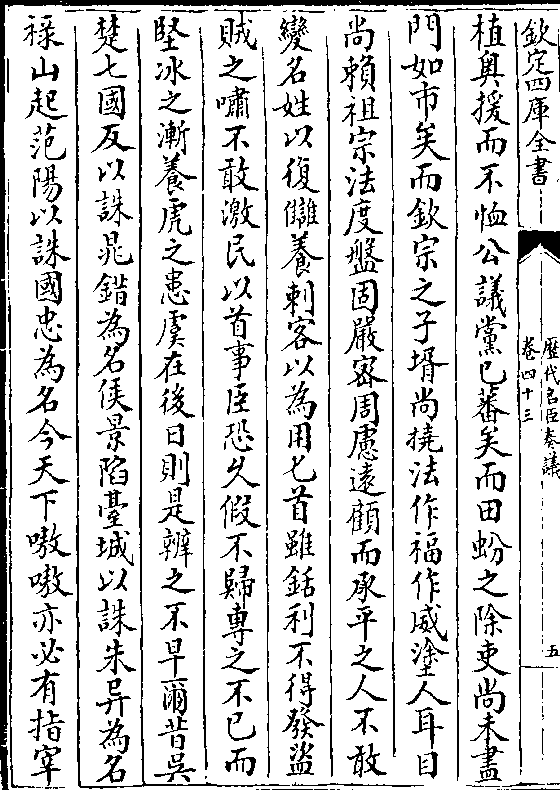 欽定四庫全書
歷代名臣奏議
卷四十三
五
植奥援而不恤公議黨已蕃矣而田蚡之除吏尚未盡
門如市矣而欽宗之子壻尚撓法作福作威塗人耳目
尚賴祖宗法度盤固嚴密周慮遠顧而承平之人不敢
變名姓以復讎養刺客以為用匕首雖銛利不得發盜
賊之嘯不敢激民以首事臣恐久假不歸專之不已而
堅冰之漸養虎之患虞在後日則是辨之不早爾昔吳
楚七國反以誅鼂錯為名侯景陷臺城以誅朱异為名
祿山起范陽以誅國忠為名今天下嗷嗷亦必有指宰